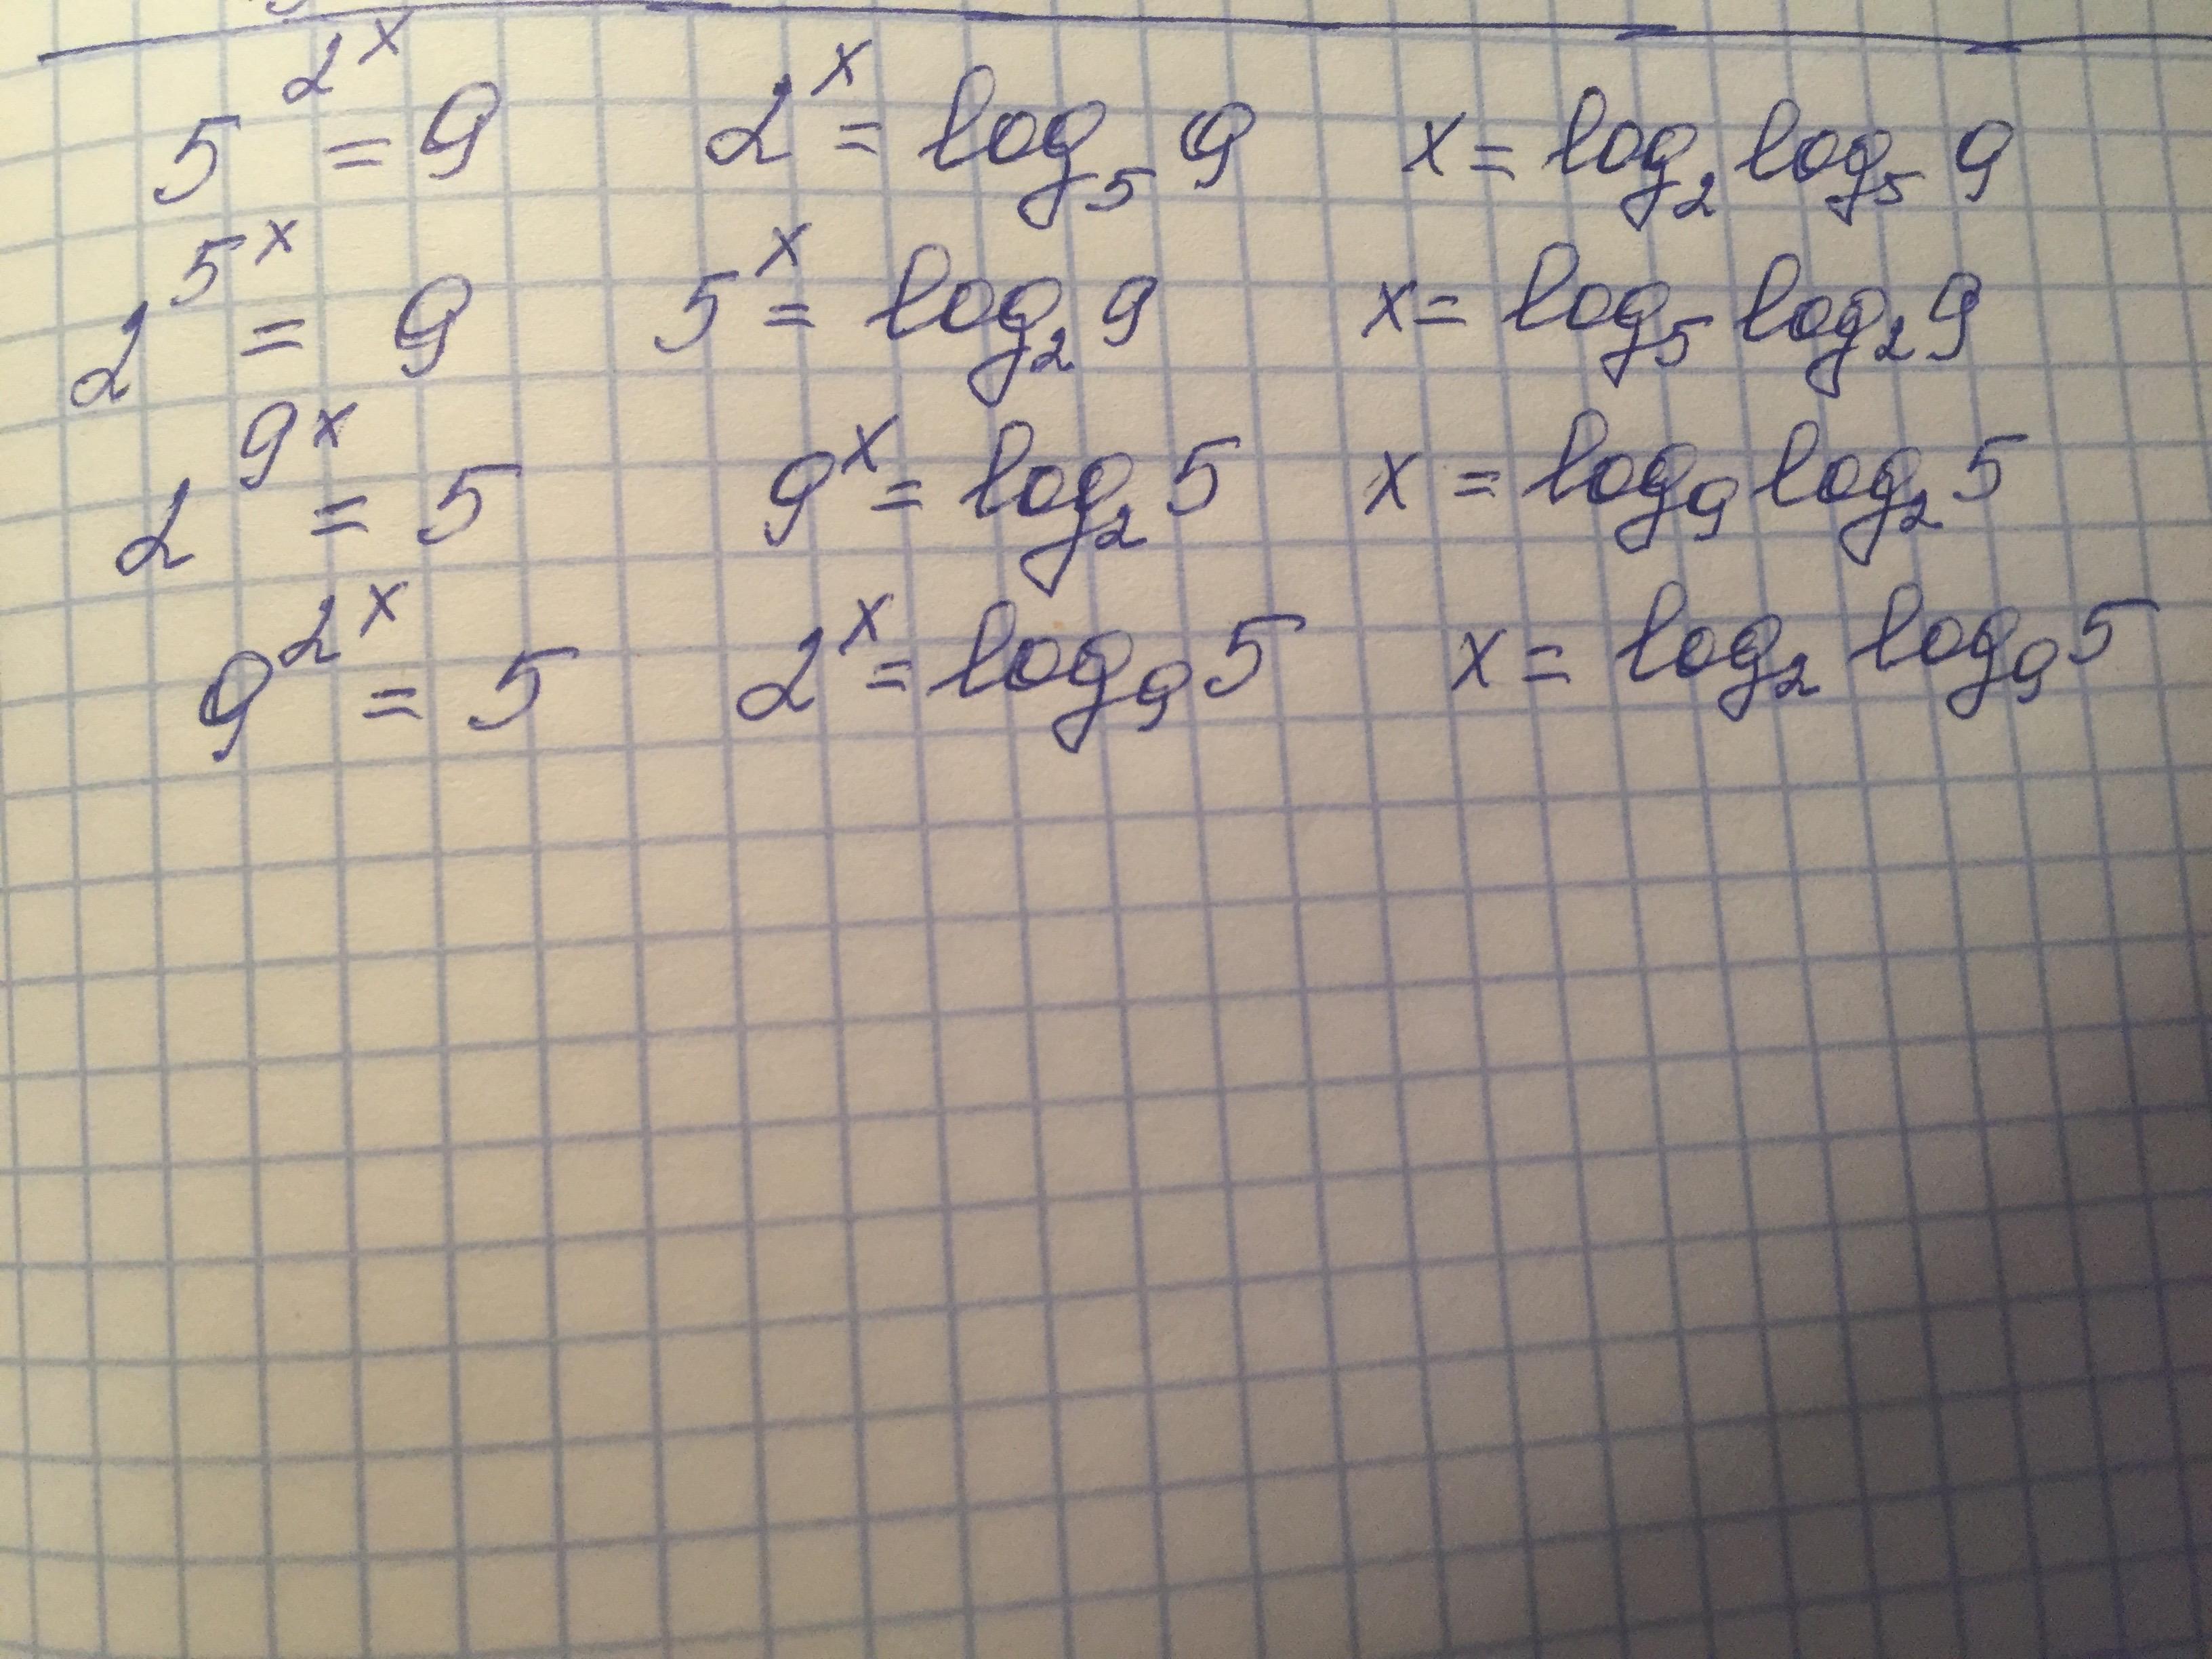 5^{2^x} = 9   2^x = log_5 9   x = log_2 log_5 9
2^{5^x} = 9   5^x = log_2 9   x = log_5 log_2 9
2^{9^x} = 5   9^x = log_2 5   x = log_9 log_2 5
9^{2^x} = 5   2^x = log_9 5   x = log_2 log_9 5